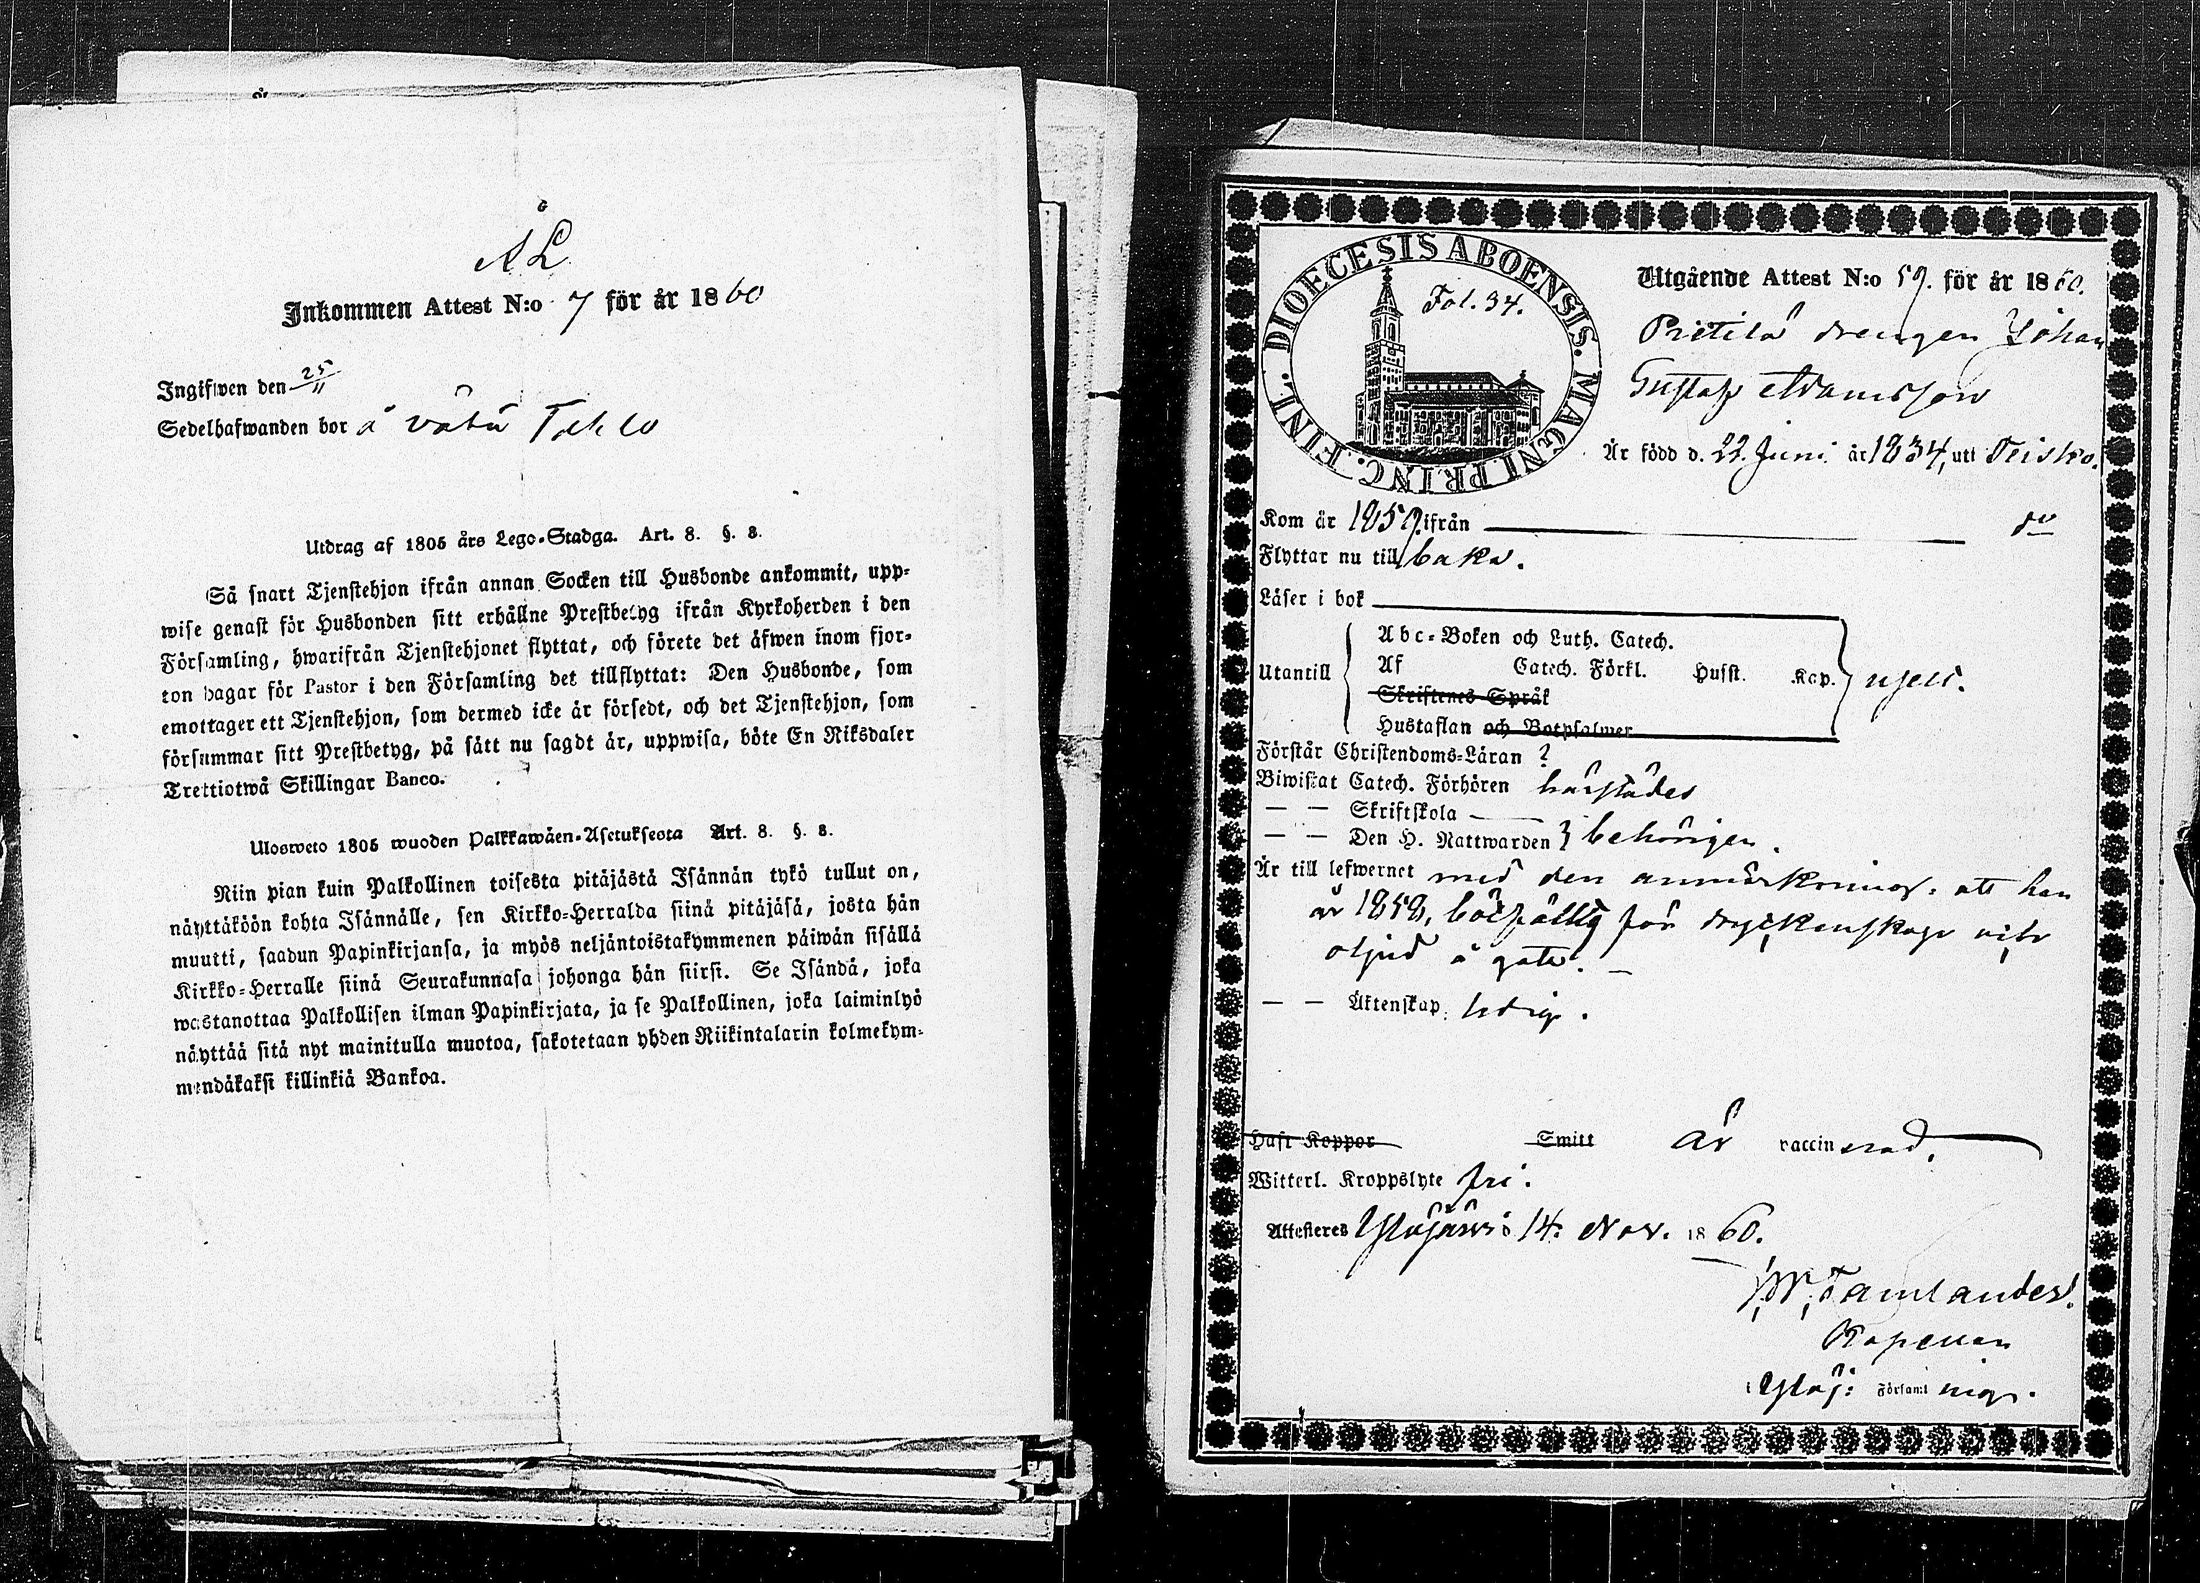 Å L
Inkommen Attest N:o 7 för år 1860
Ingifwen den 25/11
Sedelhafwanden bor å
Utdrag af 1805 års Lego-Stadga. Art. 8. §. 8.
Så snart Tjenstehjon ifrån annan Socken till Husbonde ankommit, upp-
wise genast för Husbonden sitt erhållne Prestbetyg ifrån Kyrkoherden i den
Församling, hwarifrån Tjenstehjonet flyttat, och förete det äfwen inom fjor-
ton dagar för Pastor i den Församling det tillflyttat: Den Husbonde, som
emottager ett Tjenstehjon, som dermed icke är försedt, och det Tjenstehjon, som
försummar sitt Prestbetyg, på sätt nu sagdt är, uppwisa, böte En Riksdaler
Trettiotwå Skillingar Banco.
Ulosweto 1805 wuoden Palkkawäen-Asetuksesta Art. 8. §. 8.
Niin pian kuin Palkollinen toisesta pitäjästä Isännän tykö tullut on,
näyttäköön kohta Isännälle, sen Kirkko-Herralda siinä pitäjäsä, josta hän
muutti, saadun Papinkirjansa, ja myös neljäntoistakymmenen päiwän sisällä
Kirkko-Herralle siinä Seurakunnasa johonga hän siirsi. Se Isändä, joka
wastanottaa Palkollisen ilman Papinkirjata, ja se Palkollinen, joka laiminlyö
näyttää sitä nyt mainitulla muotoa, sakotetaan yhden Riikintalarin kolmekym-
mendäkaksi killinkiä Bankoa.
DIOECESIS ABOENSIS. MAGNI PRINC. FINL.
Fol. 34.
Utgående Attest N:o 59. för år 1860.
drengen Johan
Gustaf Adamsson
Är född d. 22. Juni år 1834, utt Teisko.
Kom år 1859. ifrån do
Flyttar nu tillbaka.
Läser i bok
Abc-Boken och Luth. Catech.
Utantill Af Catech. Förkl. Husst. Kap.
Skriftenes Språk
Hustaflan och Botpsalmer
Förstår Christendoms-Läran ?
Biwistat Catech. Förhören härstädes
— — Skriftskola
— — Den H. Nattwarden } behörigen.
Är till lefwernet med den anmärkning: att han
är 1858, botfälld för dryckenskap och
oljud å gata. —
— — Äktenskap: ledig.
Haft Koppor Smitt är vaccinerad.
Witterl. Kroppslyte fri.
Attesteres Ylöjärvi 14. Nov. 1860.
Kapellan
Ylöj: Församlings.